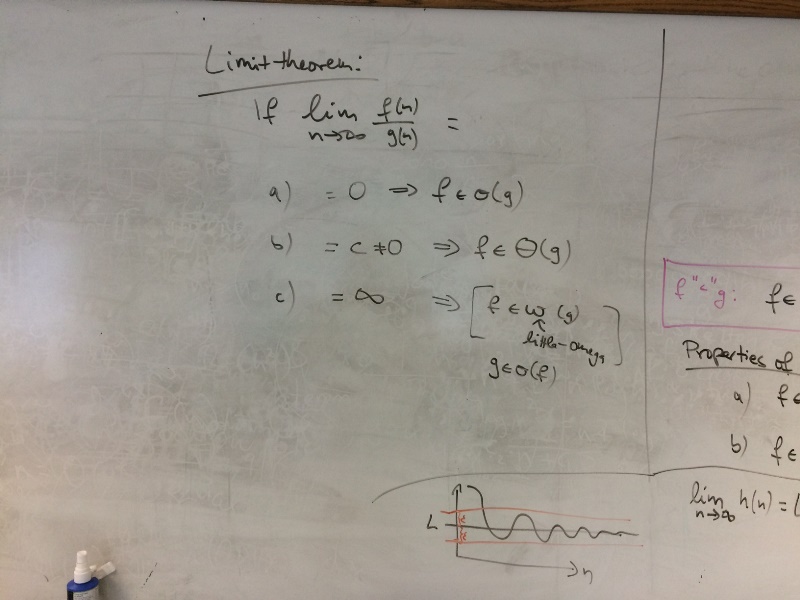 Limit theorem:
If lim n→∞ f(n)/g(n) =
a) = 0 ⇒ f ∈ o(g)
b) = c ≠ 0 ⇒ f ∈ Θ(g)
c) = ∞ ⇒ [ f ∈ ω(g)
↑
little-omega ]
g ∈ o(f)
f "<" g: f ∈
Properties of
a) f ∈
b) f ∈
lim n→∞ h(n) = L
L
ε
ε
n